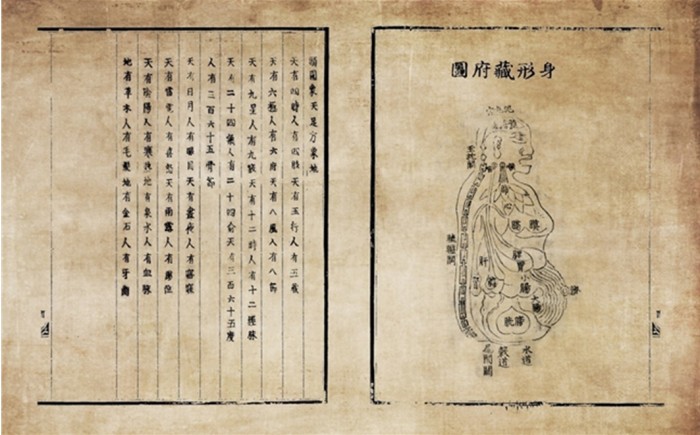 身形藏府圖
泥丸宮
玉枕關
心
脾
胃
肝
小腸
大腸
臍
轆轤關
膀胱
水道
穀道
尾閭關
頭圓象天足方象地
天有四時人有四肢天有五行人有五藏
天有六極人有六府天有八風人有八節
天有九星人有九竅天有十二時人有十二經脉
天有二十四氣人有二十四兪天有三百六十五度
人有三百六十五骨節
天有日月人有眼目天有晝夜人有寤寐
天有雷電人有喜怒天有雨露人有涕泣
天有陰陽人有寒熱地有泉水人有血脉
地有草木人有毛髮地有金石人有牙齒